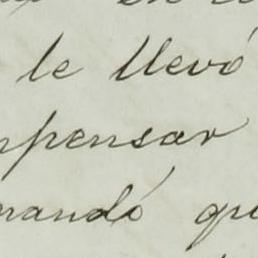 le llevó
mpensar
mandó que